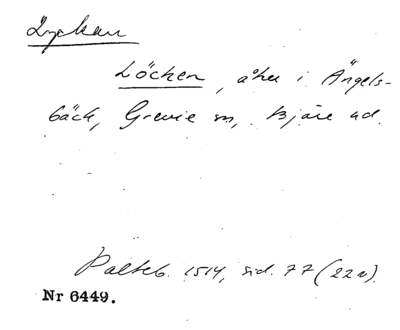 Lyckan
Löcken, åker i Ängels-
bäck, Grevie sn, Bjäre hd.
Palteb. 1514, sid. 77 (22a).
Nr 6449.